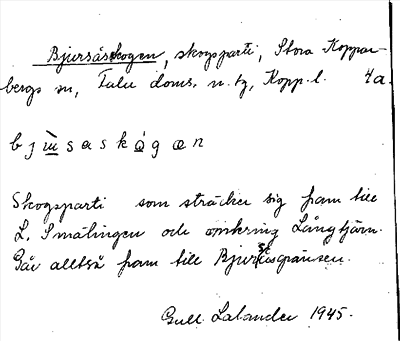 Bjursåskogen, skogsparti, Stora Koppar-
bergs sn, Falu doms. n. tg, Kopp. l. 4a.
b j ɯ̀ s a s k å g æ n
Skogsparti som sträcker sig fram till
L. Smälingen och omkring Långtjärn.
Går alltså fram till Bjursåsgränsen.
Gull. Lalander 1945.